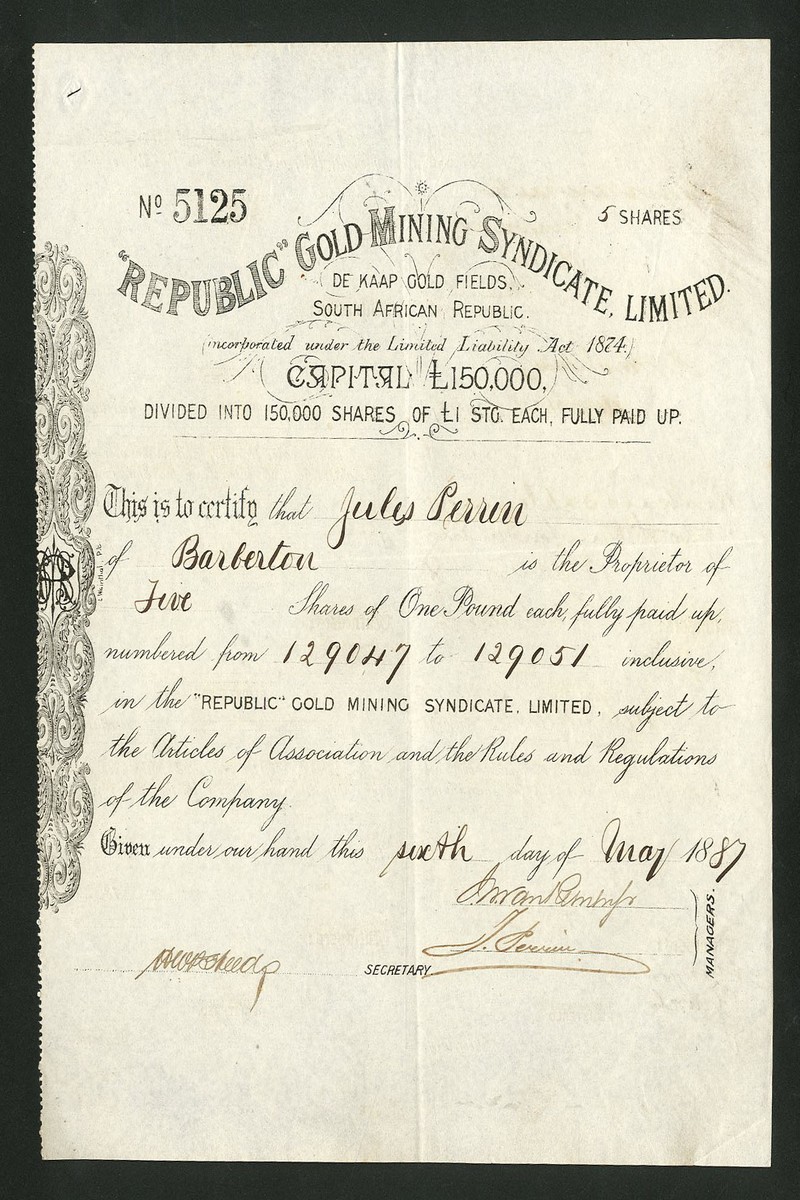 Nº 5125
5 SHARES
"REPUBLIC" GOLD MINING SYNDICATE, LIMITED.
DE KAAP GOLD FIELDS.
SOUTH AFRICAN REPUBLIC.
(incorporated under the Limited Liability Act 1874.)
CAPITAL £150,000,
DIVIDED INTO 150,000 SHARES OF £1 STG. EACH, FULLY PAID UP.
This is to certify that Jules Perrin
of Barberton is the Proprietor of
Five Shares of One Pound each, fully paid up,
numbered from 129047 to 129051 inclusive,
in the "REPUBLIC" GOLD MINING SYNDICATE, LIMITED, subject to
the Articles of Association and the Rules and Regulations
of the Company.
Given under our hand this sixth day of May 1887
J. Perrin
MANAGERS.
SECRETARY